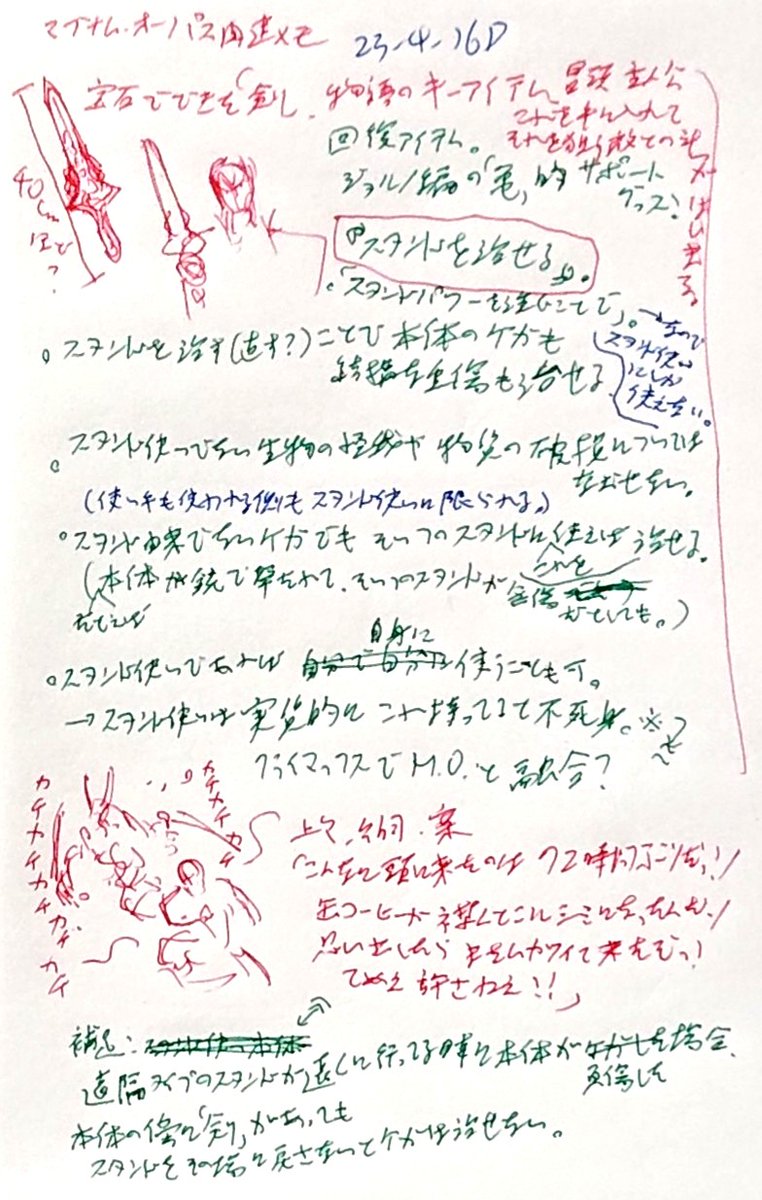 マグナム・オーパス関連メモ 23-4-16D
宝石でできた「剣」、物語のキーアイテム 冒頭 主人公
これを手に入れて
それを狙う敵との
がはじまる。
回復アイテム。
ジョルノ編の「亀」的 サポート
グッズ?
40cmほど?
『スタンドを治せる』。
「スタンドパワーを 」ことで。→なので
スタンド使い
にしか
使えない。
。スタンドを治す(直す?)ことで 本体のケガも
結構な重傷も治せる
。スタンド使いでない生物の怪我や 物質の破損については
なおせない。
(使い手も使われる側もスタンド使いに限られる。)
。スタンド由来でないケガでも そいつのスタンドに使えば 治せる。
これを
(本体が銃で撃たれて、そいつのスタンドが 無傷
だとしても。)
たとえば
自身に
。スタンド使いであれば 使うことも可。
→スタンド使いは 実質的に これ持ってると不死身。※
クライマックスでM.O.と融合?
カチカチカチカチ
カチカチカチカチカチ
台詞・案
「こんなに頭に来たのは 72時間ぶりだっ!
缶コーヒーが 襟んとこにシミになったんだ!
思い出したら またムカついて来たぞっ!
てめえ 許さねえ!!」
補足:
遠隔タイプのスタンドが遠くに行ってる時に本体が 負傷した場合、
本体の傍に「剣」があっても
スタンドをその場に戻さないとケガは治せない。